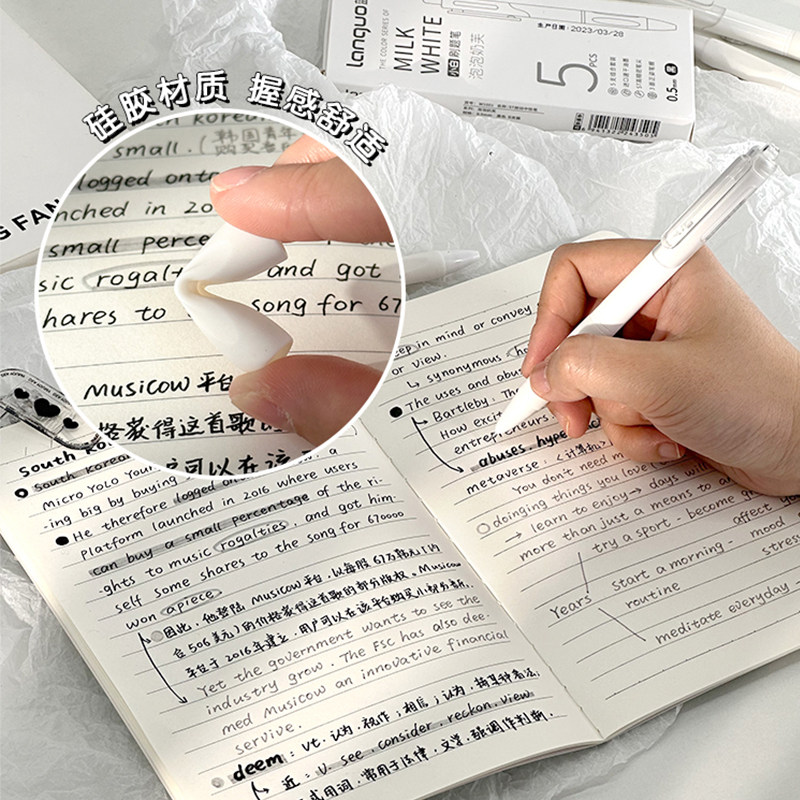 硅胶材质 握感舒适
languo
THE COLOR SERIES OF
MILK
WHITE
小白刷题笔
泡泡奶芙
生产日期：2023/03/28
5
PCS
0.5mm
G FAN
small. (韩国青年
logged onto
nched in 20
small perce
sic royalt and got
hares to song for 67
Musicow 平台
格获得这首歌
可以在该
South Ko
South Korea
Micro YoLo Your
-ing big by buying a
He therefore logged on
Platform launched in 2016 where users
can buy a small percentage of the ri-
-ghts to music royalties, and got him-
self some shares to the song for 670000
won apiece.
因此，他登陆 Musicow 平台，以每股 67万韩元(约
合506美元)的价格获得这首歌的部分版权。Musicow
平台于2016年建立，用户可以在该平台购买小部分
Yet the government wants to see the
industry grow. The FSC has also dee-
med Musicow an innovative financial
servive.
deem : vt. 认为，视作；相信；认为，持某种看法
近 : v. see, consider, reckon, view
式用词，常用于法律，文学，强调作判断.
eep in mind or convey
or view.
↳ synonymous
The uses and abu
Bartleby: Th
How excit
entrepreneurs
abuses, hype
metaverse
You don't need m
doinging things you love
→ learn to enjoy → days will
more than just a means to a
try a sport - become
affect
mood
stress
Years
start a morning -
routine
meditate everyday